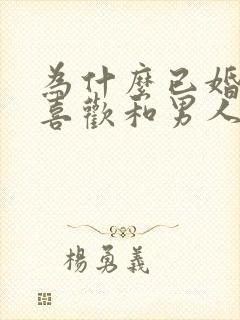 為什麼已婚
喜歡和男人
楊勇義